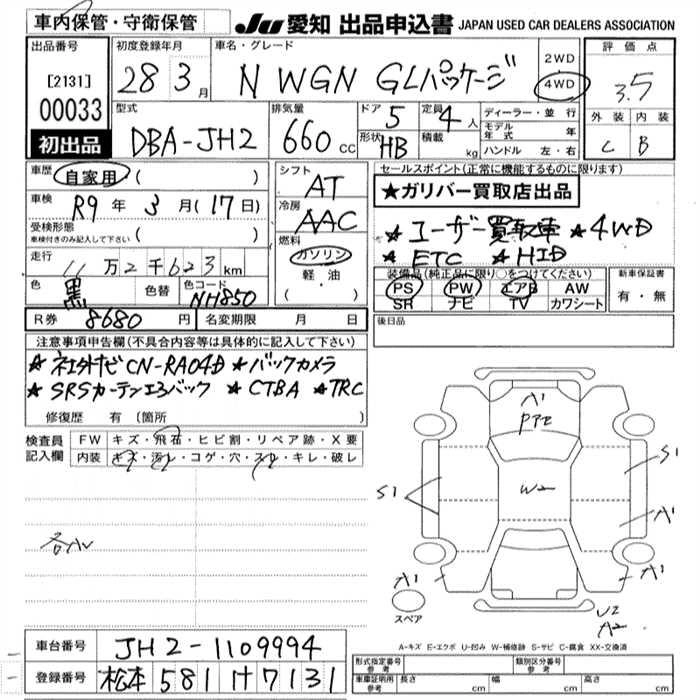 車内保管・守衛保管
JU 愛知 出品申込書 JAPAN USED CAR DEALERS ASSOCIATION
出品番号 初度登録年月 車名・グレード 評価点
[2131] 28 3月 N WGN GLパッケージ 2WD 4WD 3.5
00033 型式 排気量 ドア 5 定員 4人 ディーラー・並行 外装 内装
初出品 DBA-JH2 660cc 形状 HB 積載 kg モデル年式 年 C B
ハンドル 左・右
車歴 自家用 ( ) シフト AT セールスポイント(正常に機能するものに限ります)
車検 R9年 3月(17日) 冷房 AAC ★ガリバー買取店出品
受検形態 車検付きのみ記入して下さい ( ) 燃料 ガソリン ★ユーザー買取車 ★4WD
走行 11万2千623km 軽・油 ★ETC ★HID
色 黒 色替 色コード NH850 ( ) 装備品(純正品に限り○をつけてください) 新車保証書
PS PW エアB AW 有・無
SR ナビ TV カワシート
R券 8680円 名変期限 月 日 後日品
注意事項申告欄(不具合内容等は具体的に記入して下さい)
★社外ナビCN-RA04D ★バックカメラ
★SRSカーテンエアバック ★CTBA ★TRC
修復歴 有 (箇所 )
検査員記入欄 FW キズ・飛石・ヒビ割・リペア跡・X要
内装 キズ・汚レ・コゲ・穴・スレ・キレ・破レ
A1
W2
S1
S1
A1
A1
A1
U2
A2
スペア
A-キズ E-エクボ U-凹み W-補修跡 S-サビ C-腐食 XX-交換済
車台番号 JH2-1109994
登録番号 松本 581 サ 7131
形式指定番号 参考 類別区分番号 参考
車庫証明用 参考 長さ cm 幅 cm 高さ cm